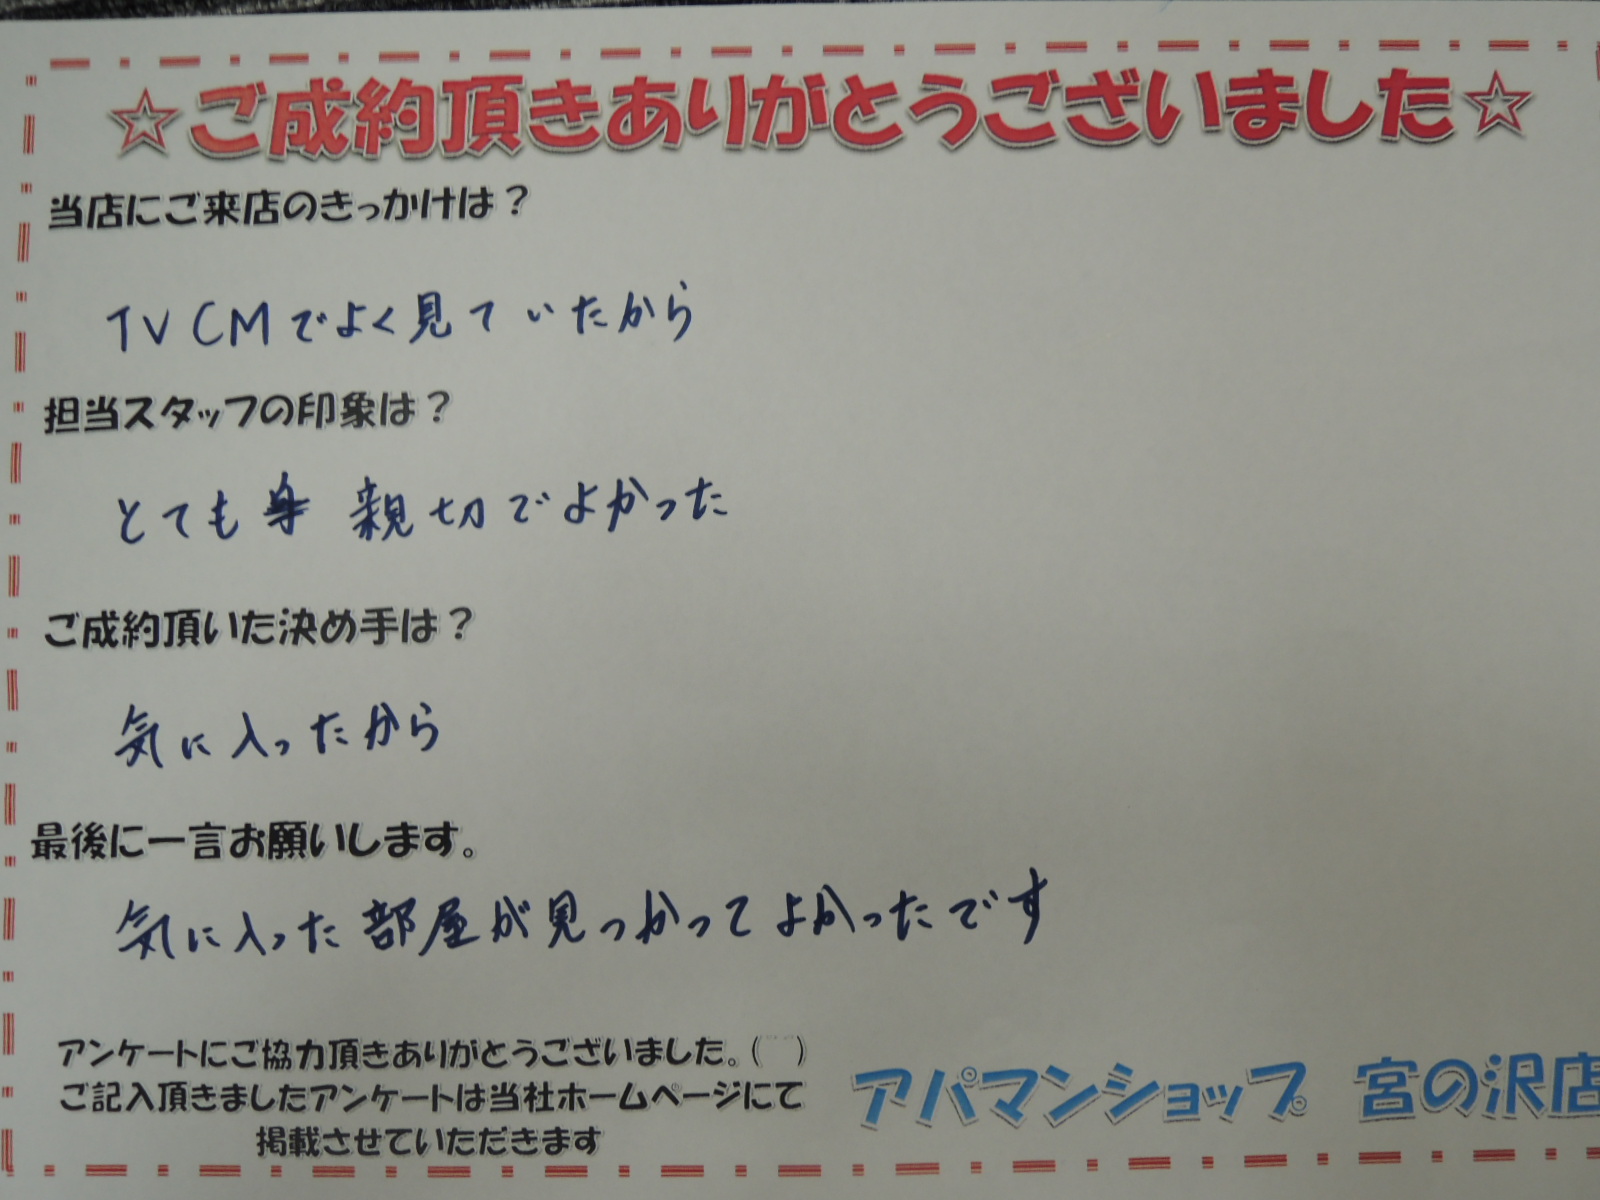 ☆ご成約頂きありがとうございました☆
当店にご来店のきっかけは？
TV CMでよく見ていたから
担当スタッフの印象は？
とても 親切でよかった
ご成約頂いた決め手は？
気に入ったから
最後に一言お願いします。
気に入った部屋が見つかってよかったです
アンケートにご協力頂きありがとうございました。(  )
ご記入頂きましたアンケートは当社ホームページにて
掲載させていただきます
アパマンショップ 宮の沢店